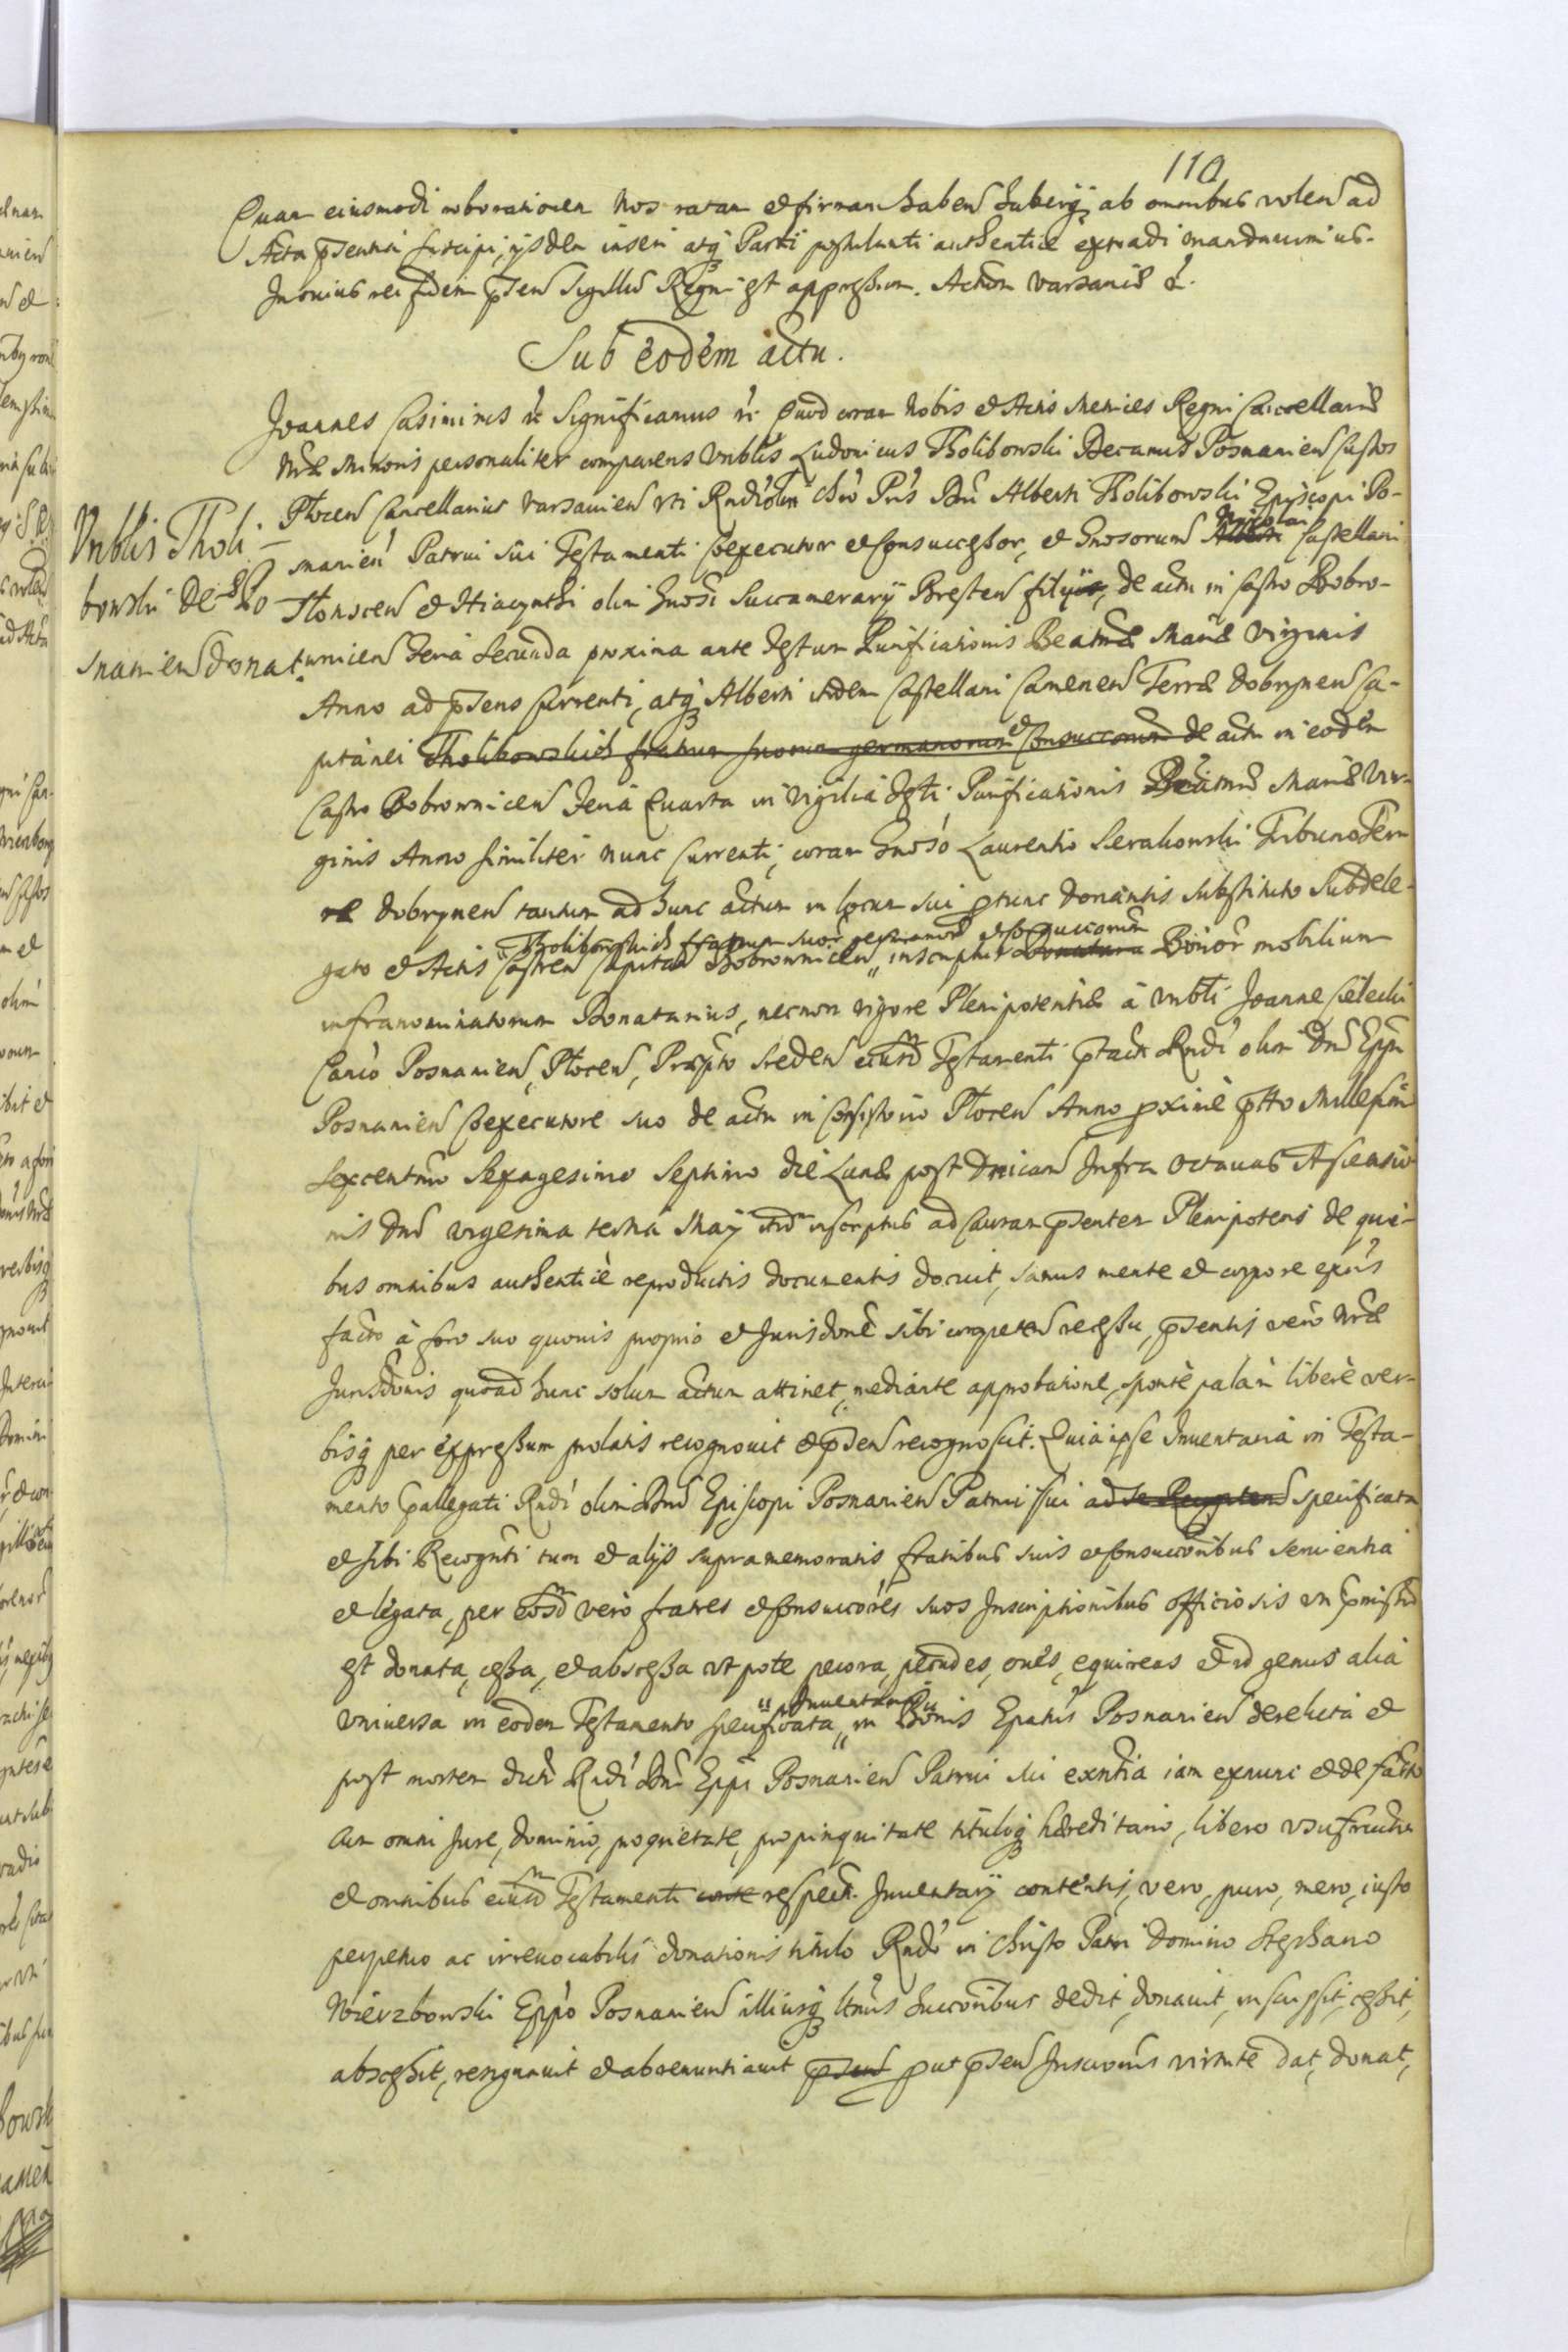 110
Quam eiusmodi roborationem Nos ratam et firmam haben haberiq ab omnibus volen ad
Acta pnsentia suscipi, ijsdem inseri atq Parti postulanti authentice extradi mandauimus.
In cuius rei fidem pnsen Sigillu Regni est appressum. Actum Varsauiæ &.
Sub eodem actu.
Joannes Casimirus &c Significamus &c Quod coram Nobis et Actis Metrices Regni Cancellariæ
Nræ Minoris personaliter comparens Vnblis Ludouicus Tholibowski Decanus Posnanien Custos
Plocen Cancellarius Varsauien uti Rndi olim Chro Pris Dni Alberti Tholibowski Episcopi Po-
Vnblis Tholi-
bowski Dec Po
snanien donat.
snanien Patrui sui Testamenti Coexecutor et Consuccessor, et Gnosorum Nicolai Castellani
Plonscen et Hiacynthi olim Gnosi Succamerarij Bresten filij, de actu in Castro Bobro-
wnicen Feria Secunda proxima ante Festum Purificationis Beatmæ Mariæ Virginis
Anno ad pnsens currenti, atq Alberti itidem Castellani Camenen Terræ Dobrynen Ca-
pitanei Tholibowskich fratrum suorum germanorum et Consuccorum de actu in eodem
Castro Bobrownicen Feria Quarta in Vigilia Fti Purificationis Beatmæ Mariæ Vir-
ginis Anno similiter nunc currenti, coram Gnoso Laurentio Sierakowski Tribuno Ter
ræ Dobrynen tantum ad hunc actum in locum sui ptunc donantis substituto Subdele-
Tholibowskich fratrum suor germanor et Consuccorum
gato et Actis Castren Capitan Bobrownicen inscriptus Bonor mobilium
infranominatorum Donatarius, necnon vigore Plenipotentiæ à Vnbli Joanne Cielecki
Canco Posnanien, Plocen, Præpto Sreden eiusd Testamenti ptacti Rndi olim Dni Eppi
Posnanien Coexecutore suo de actu in Consistorio Plocen Anno pxime ptto Millesimo
Sexcentmo Sexagesimo Septimo die Lunæ post Dnicam Infra Octauas Ascensio
nis Dni vigesima tertia Maij itid inscriptus ad causam pnsentem Plenipotens de qui-
bus omnibus authenticè reproductis documentis docuit, sanus mente et corpore exns
facto à foro suo quouis proprio et Jurisdone sibi competen recessu, pnsentis vero Nræ
Jurisdonis quoad hunc solum actum attinet, mediante approbatione, sponte palàm liberè ver-
bisq per expressum prolatis recognouit et pnsen recognoscit. Quia ipse Inuentaria in Testa-
mento pallegati Rndi olim Dni Episcopi Posnanien Patrui sui ad se specificata
et sibi Recognti tum et alijs supramemoratis fratribus suis et Consuccoribus seruientia
et legata, per eosd vero fratres et Consuccores suos Inscriptionibus officiosis ut pmissu
est donata, cessa, et abscessa utpote pecora, pecudes, oues, equireas et id genus alia
uniuersa in eodem Testamento specificata Inuentarij in Bonis Epatus Posnanien derelicta et
post mortem dicti Rndi Dni Eppi Posnanien Patrui sui exntia iam exnunc et de facto
cum omni Jure, dominio, proprietate, propinquitate tituloq hæreditario, libero usufructu
et omnibus eiusd Testamenti respect. Inuentarij contentis, vero, puro, mero, iusto
perpetuo ac irreuocabilis donationis titulo Rndo in Christo Patri Domino Stephano
Wierzbowski Eppo Posnanien illiusq ltmis Succoribus dedit, donauit, inscripsit, cessit,
abscessit, resignauit et abrenuntiauit put pnsen Inscronis virtute dat, donat,